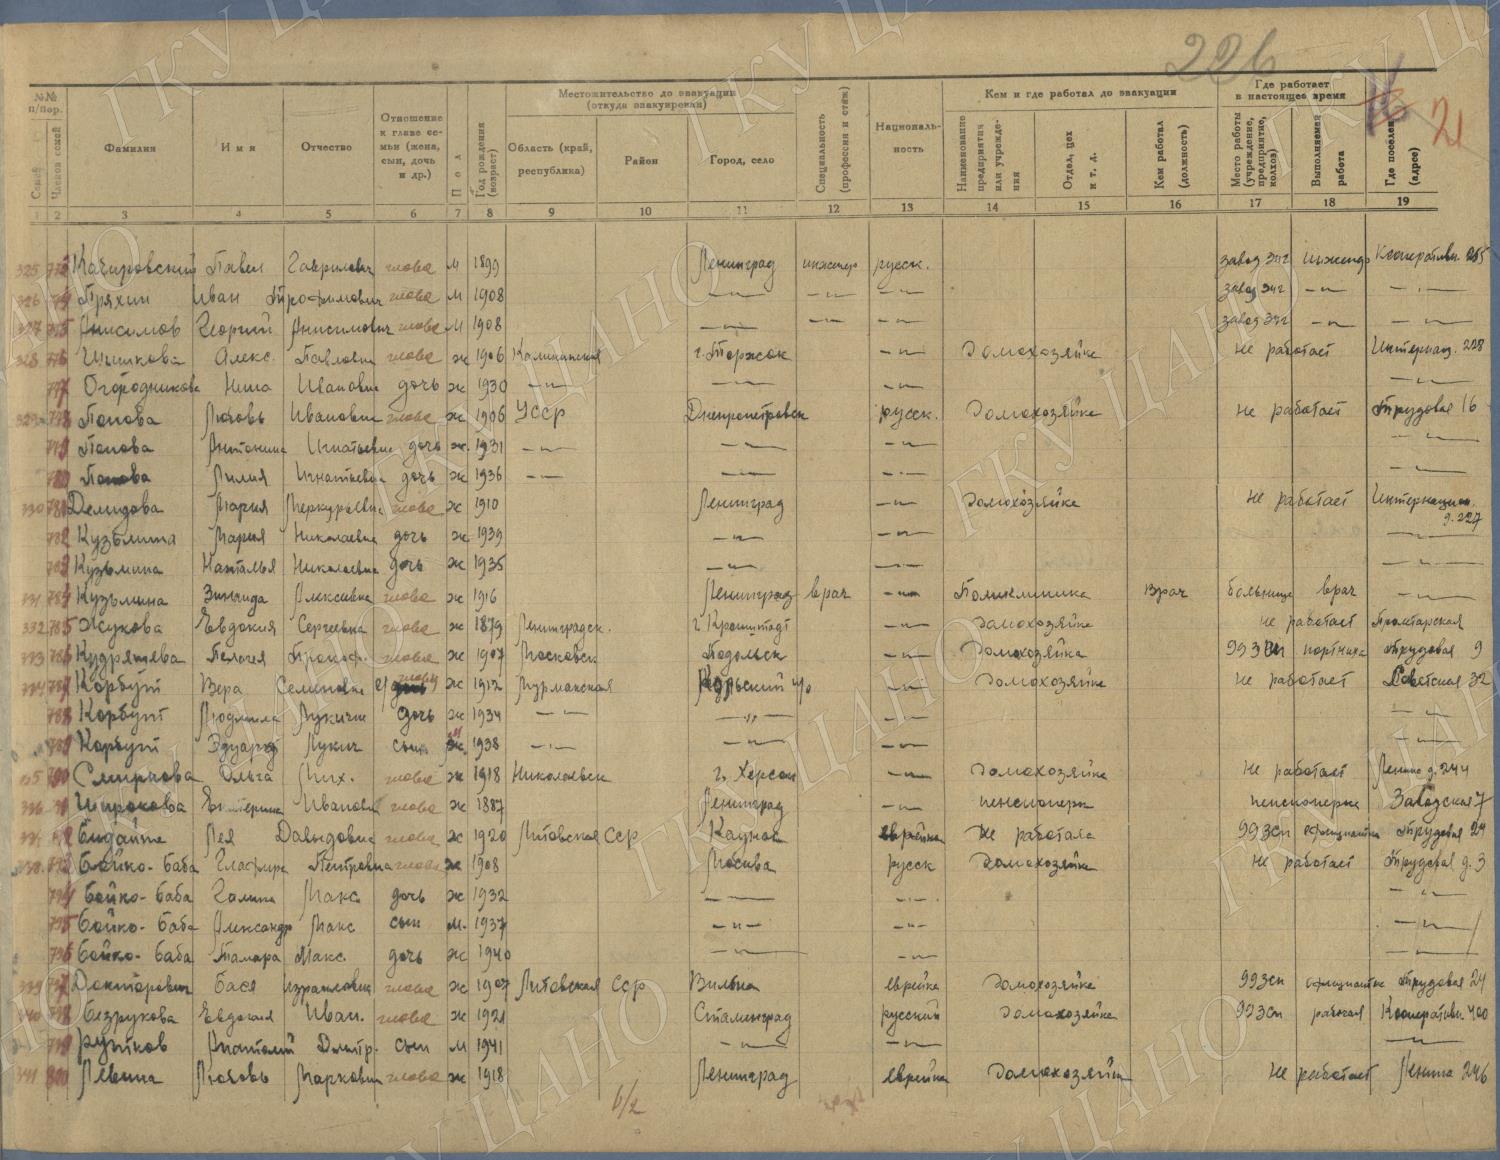 226
21
№№ п/пор.
Семей
Членов семей
Фамилия
Имя
Отчество
Отношение к главе семьи (жена, сын, дочь и др.)
Пол
Год рождения (возраст)
Местожительство до эвакуации (откуда эвакуирован)
Область (край, республика)
Район
Город, село
Специальность (профессия и стаж)
Националь-ность
Кем и где работал до эвакуации
Наименование предприятия или учреждения
Отдел, цех и т. д.
Кем работал (должность)
Где работает в настоящее время
Место работы (учреждение, предприятие, колхоз)
Выполняемая работа
Где поселен (адрес)
1 2 3 4 5 6 7 8 9 10 11 12 13 14 15 16 17 18 19
325 773 Качировский Павел Гаврилович глова м 1899 Ленинград инженер русск. завод инженер Кооператив. 265
326 774 Пряхин Иван Трофимович глова м 1908 —"— —"— —"— завод —"— —"—
327 775 Анисимов Георгий Анисимович глова м 1908 —"— —"— —"— завод —"— —"—
328 776 Шишкова Алекс. Павловн глова ж 1906 Калининская г. Торжок —"— Домохозяйка не работает Интернац. 228
777 Огородникова Нина Ивановна дочь ж 1930 —"— —"— —"— —"—
329 778 Попова Любовь Ивановна глова ж 1906 УССР Днепропетровск русск. Домохозяйка не работает Трудовая 16
779 Попова Антонина Игнатьевна дочь ж. 1931 —"— —"— —"— —"—
780 Попова Лилия Игнатьевна дочь ж 1936 —"— —"— —"— —"—
330 781 Демидова Мария Меркурьевна глова ж 1910 Ленинград —"— Домохозяйка не работает Интернацион. д. 227
782 Кузьмина Мария Николаевна дочь ж 1939 —"— —"— —"—
783 Кузьмина Наталья Николаевна дочь ж 1935 —"— —"— —"—
331 784 Кузьмина Зинаида Алексеевна глова ж 1916 Ленинград врач —"— Поликлиника Врач больница врач —"—
332 785 Жукова Евдокия Сергеевна глова ж 1879 Ленинградск. г. Кронштадт —"— Домохозяйка не работает Пролтарская
333 786 Кудряшева Пелагея Прокоф. глова ж 1907 Московск Подольск —"— Домохозяйка 993сп портниха Трудовая 9
334 787 Корбут Вера Семеновна глова ж 1912 Мурманская Кольский —"— Домохозяйка не работает Советская 32
788 Корбут Людмила Лукичн дочь ж 1934 —"— —"— —"— —"—
789 Корбут Эдуард Лукич сын м 1938 —"— —"— —"— —"—
335 790 Смирнова Ольга Мих. глова ж 1918 Николаевск г. Херсон —"— Домохозяйка не работает Ленина д. 244
336 791 Широкова Екатерина Ивановн глова ж 1887 Ленинград —"— пенсионерк пенсионерка Заводская 7
337 792 Лея Давыдовна глова ж 1920 Литовская ССР Каунас еврейка Не работала 993сп официантка Трудовая 24
338 793 Бойко-Баба Глафира Петровна глова ж 1908 Москва русск Домохозяйка не работает Трудовая д. 3
794 Бойко-Баба Галина Макс. дочь ж 1932 —"— —"— —"—
795 Бойко-Баба Александр Макс сын м. 1937 —"— —"— —"—
796 Бойко-Баба Тамара Макс. дочь ж 1940 —"— —"— —"—
339 797 Докторович Бася Израилевна глова ж 1907 Литовская ССР Вильна еврейка Домохозяйка 993сп официантка Трудовая 24
340 798 Безрукова Евдокия Иван. глова ж 1921 Сталинград русский Домохозяйка 993сп рабочая Кооператив. 400
799 Рутков Анатолий Дмитр. сын м 1941 —"— —"— —"—
341 800 Левина Любовь Марковна глова ж 1918 Ленинград еврейка Домохозяйк не работает Ленина 246
6/2
ГКУ ЦАНО